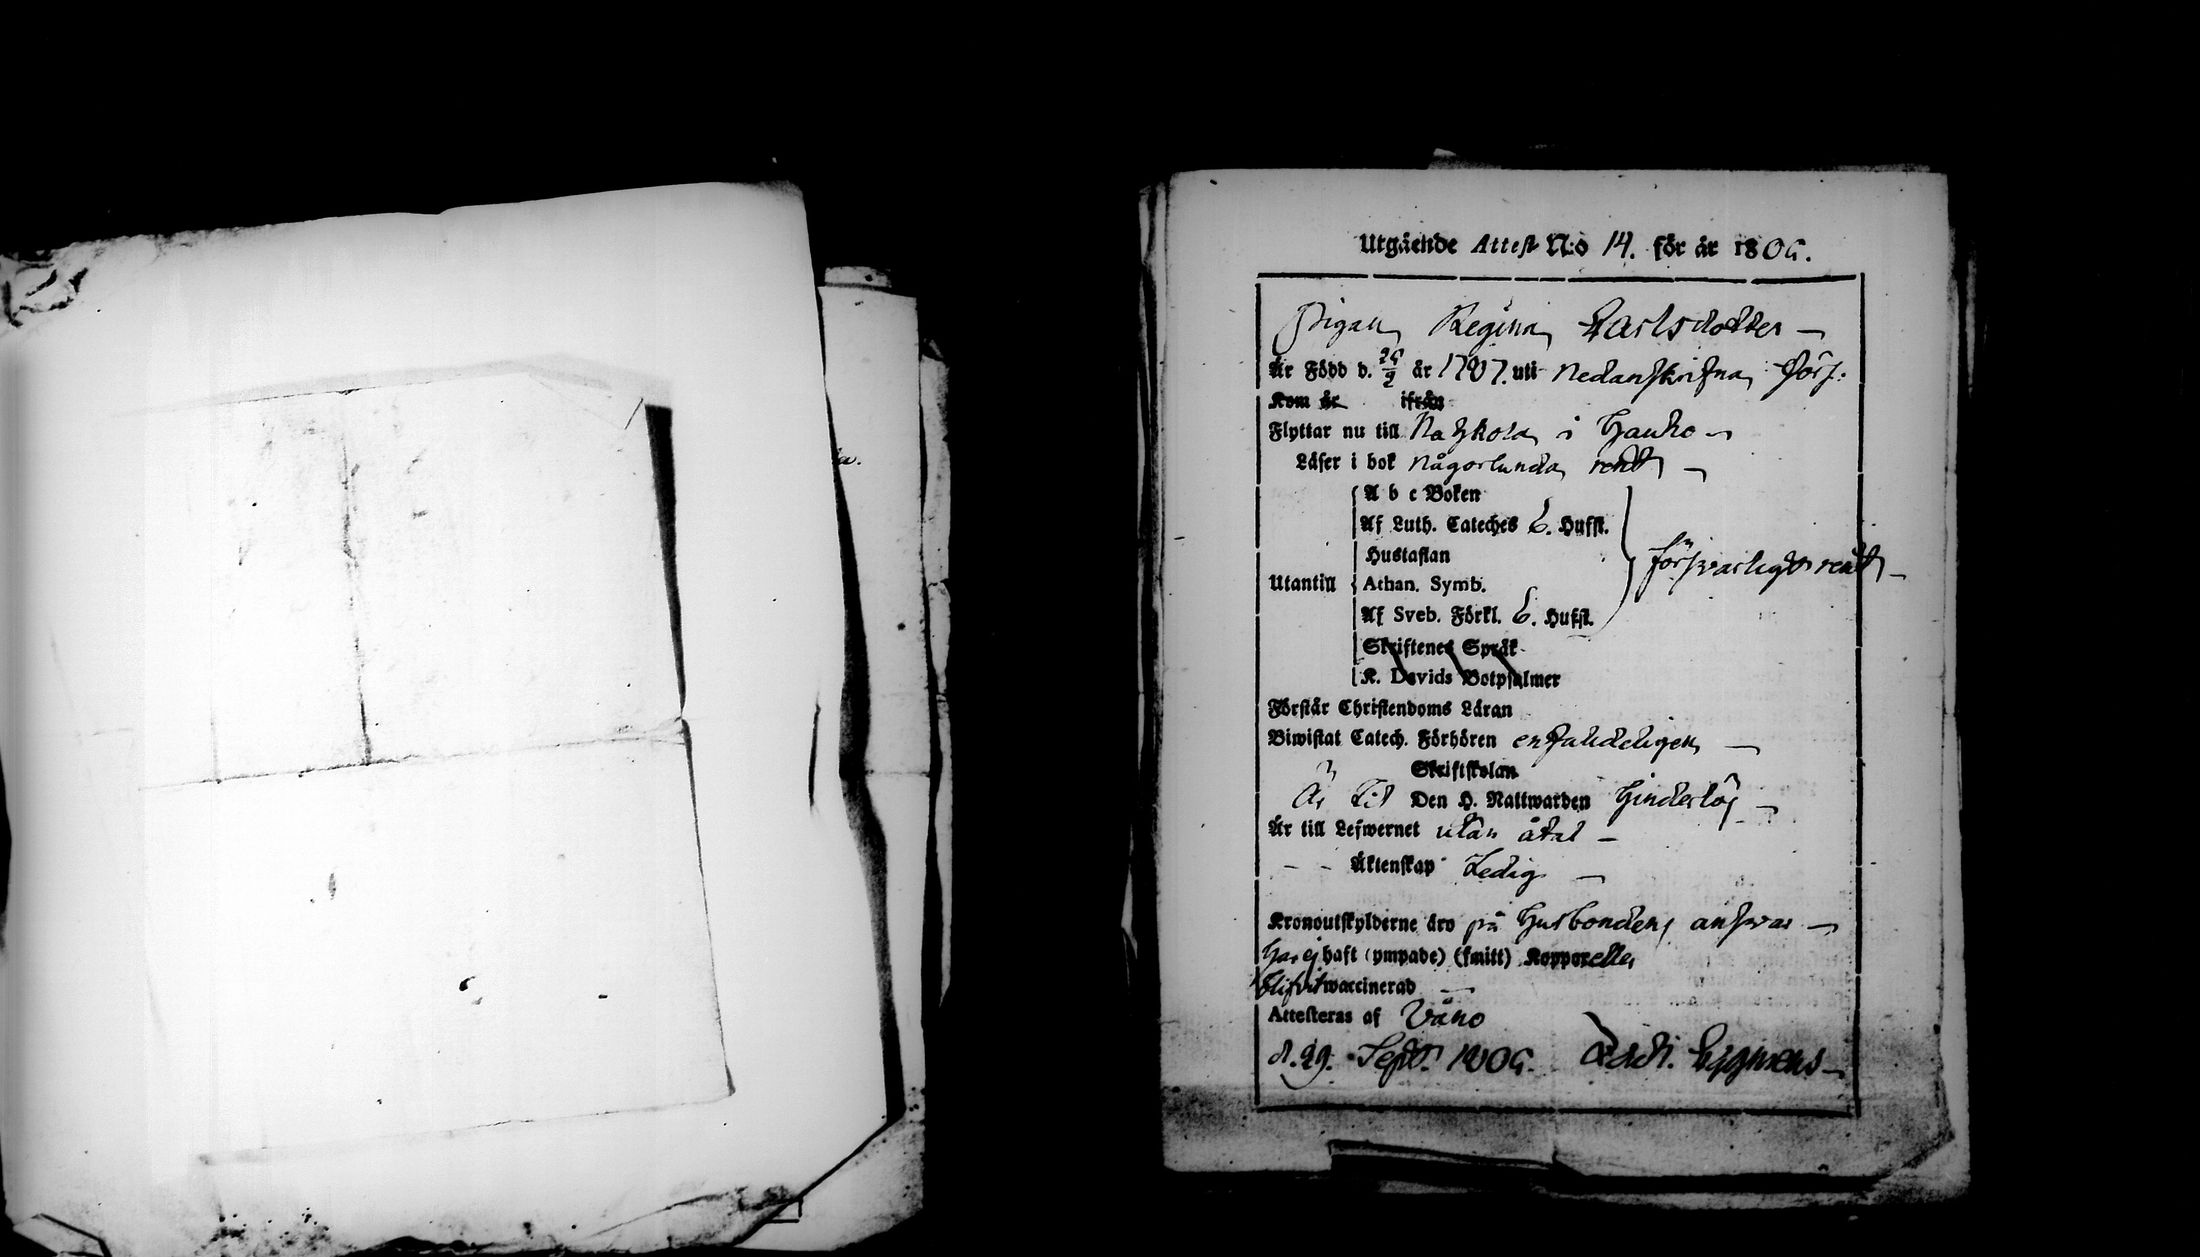 a.
Utgående Attest N:o 14. för år 1806.
Pigan Regina Carlsdotter —
Är Född d. 26/9 år 1787. uti nedanskrifna förs:
Kom år ifrån
Flyttar nu till i Hauho —
Läser i bok någorlunda rent —
A b c Boken
Af Luth. Cateches 6. Hufst.
Hustaflan
försvarligt rent —
Utantill Athan. Symb.
Af Sveb. Förkl. 6. Hufst.
Skriftenes Språk
K. Davids Botpsalmer
Förstår Christendoms Läran
Biwistat Catech. Förhören —
Skriftskolan
Är til Den H. Nattwarden hinderlös —
Är till Lefwernet utan åtal —
- - Äktenskap Ledig —
Kronoutskylderne äro på Husbondens answar —
Har ej haft (ympade) (smitt) Koppor eller
blifvit waccinerad —
Attesteras af Vånå
d. 29. Sept. 1806.